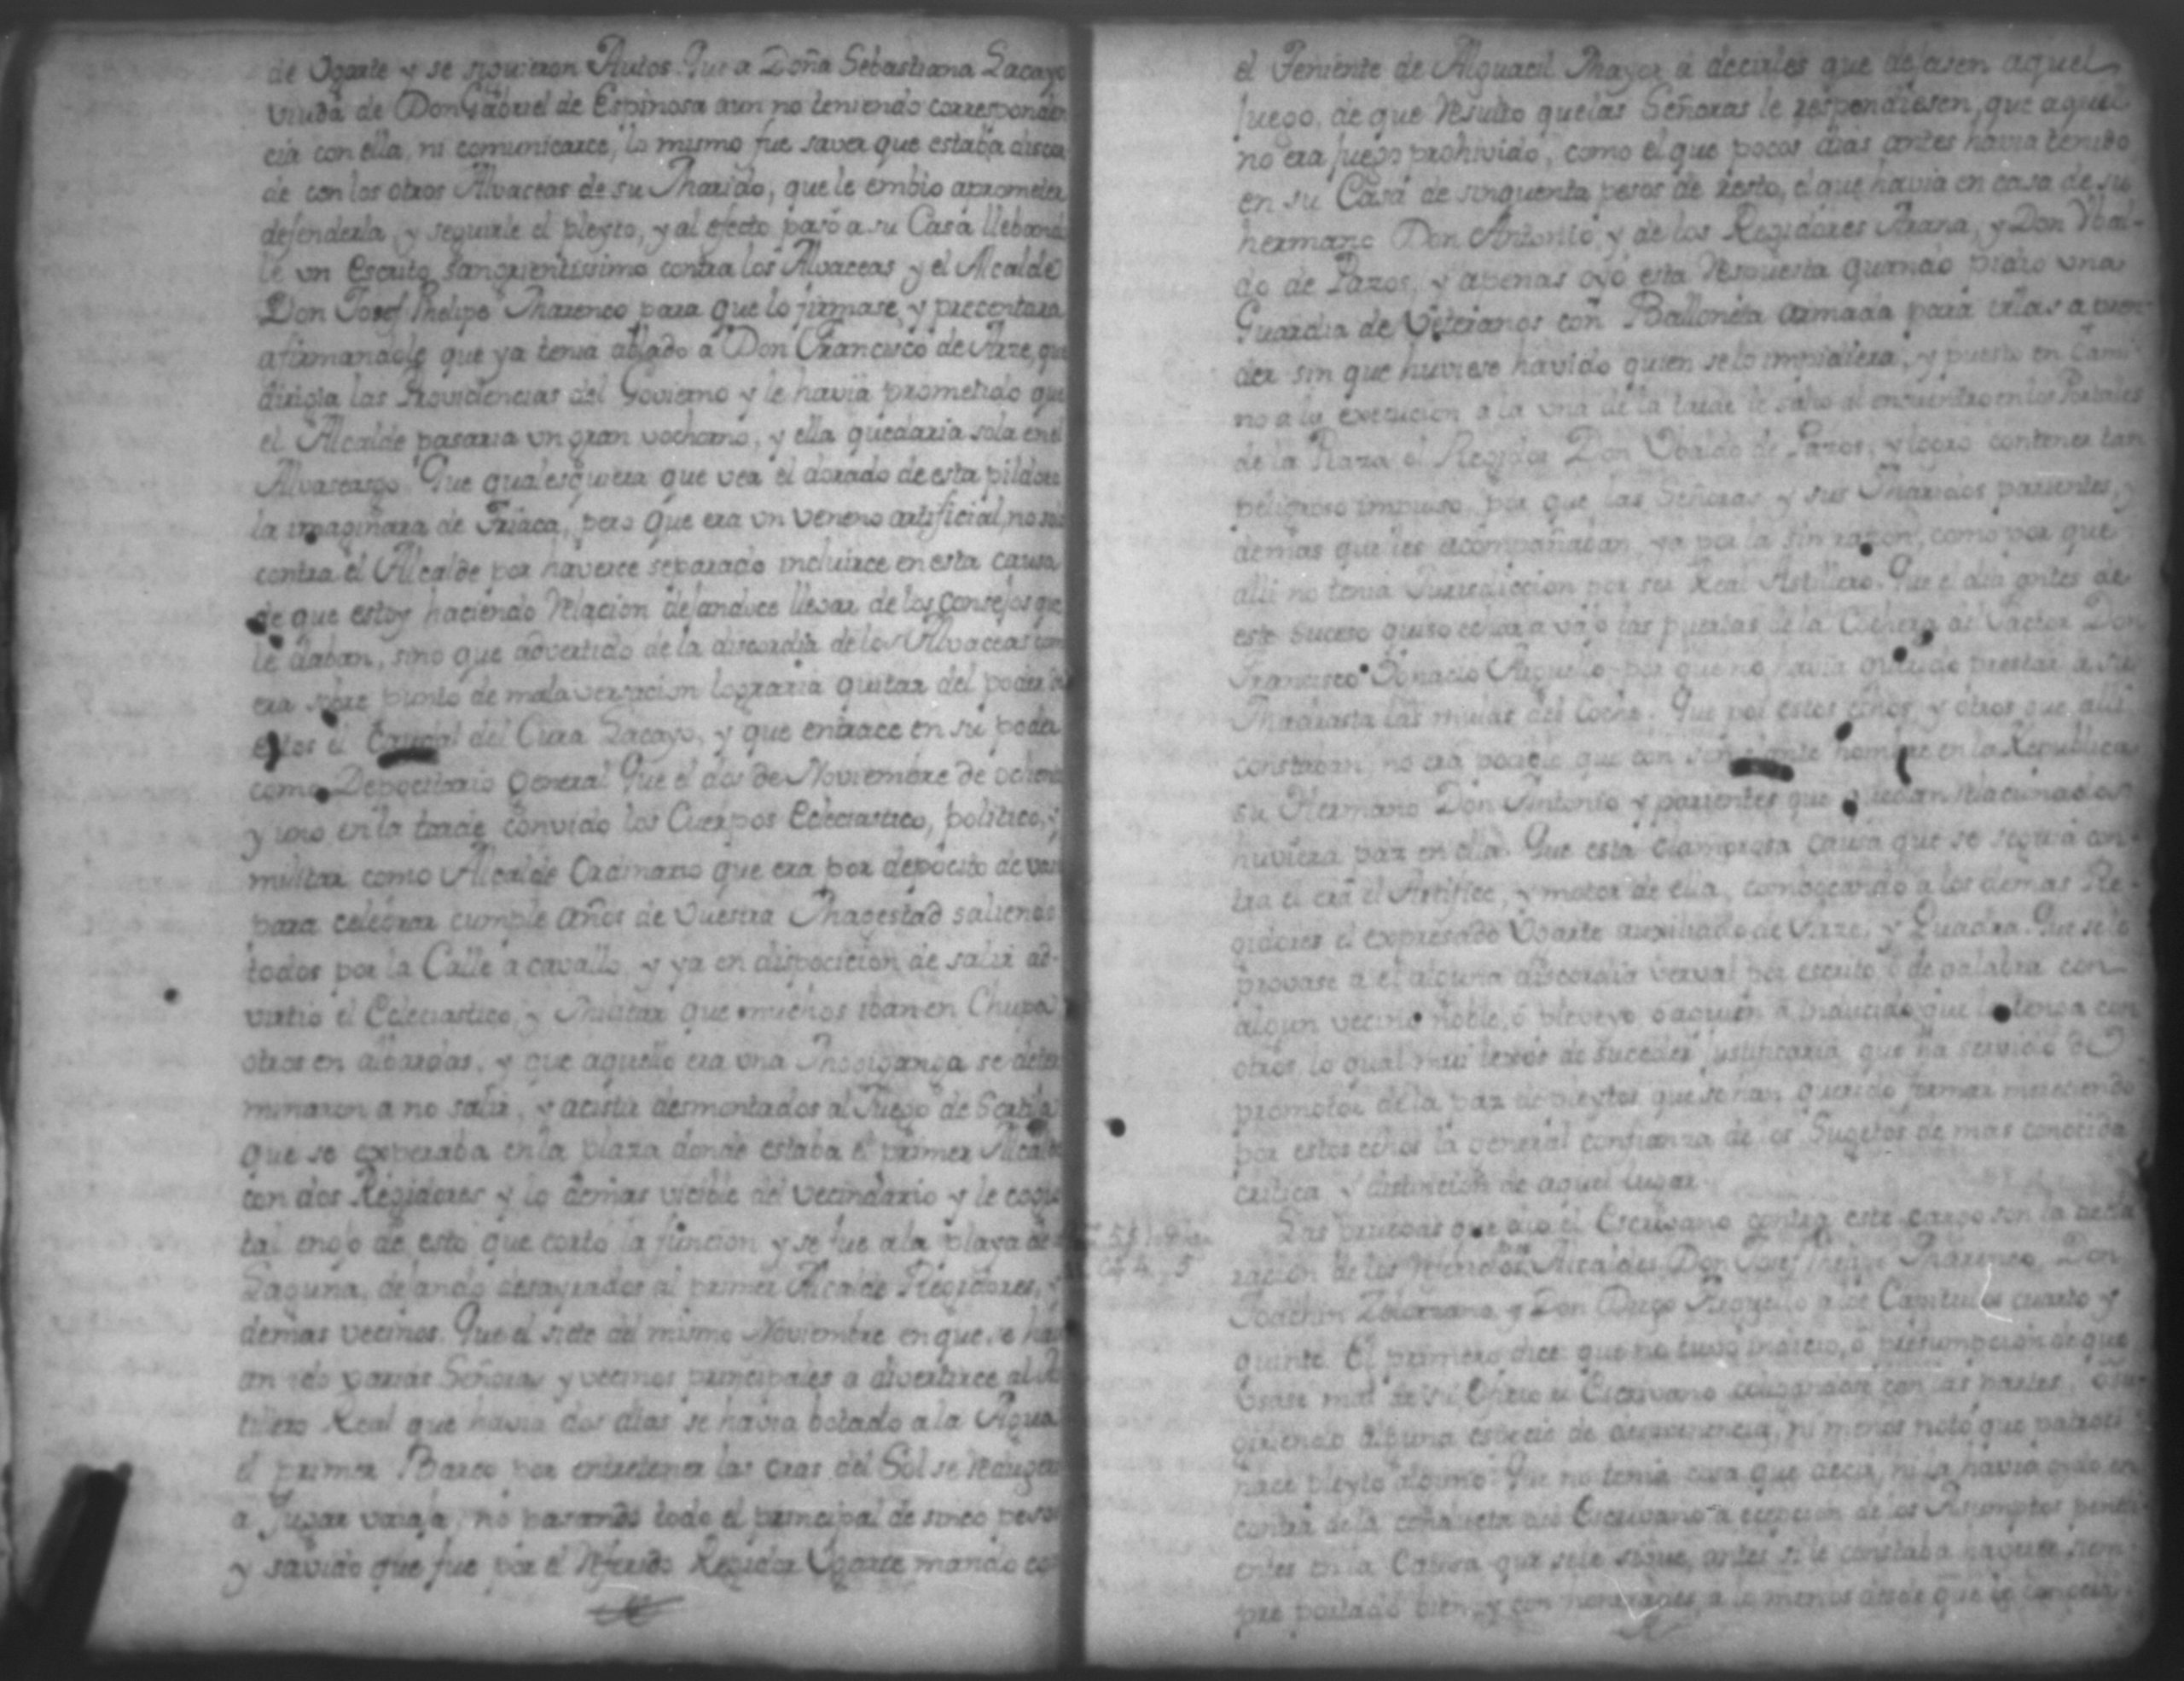 de Ogarte y se siguieron Autos. Que a Doña Sebastiana Lacayo
viuda de Don Gabriel de Espinosa aun no teniendo corresponden
cia con ella, ni comunicarce, lo mismo fue saver que estaba discor
de con los otros Alvaceas de su Marido, que le embio a prometer
defenderla, y seguirle el pleyto, y al efecto pasó a su Casa llebando
le un Escrito sangrientissimo contra los Alvaceas y el Alcalde
Don Josef Phelipe Marenco para que lo firmase, y precentara
afirmandole que ya tenia ablado a Don Francisco de Arze, que
dirigia las Providencias del Govierno y le havia prometido que
el Alcalde pasaria un gran vochorno, y ella quedaria sola en el
Alvaceasgo. Que qualesquiera que vea el dorado de esta pildora
la imaginara de Triaca, pero que era un veneno artificial, no solo
contra el Alcalde por haverce separado incluirce en esta causa
de que estoy haciendo relacion dejandoce llevar de los Consejos que
le daban, sino que advertido de la discordia de los Alvaceas como
era sobre punto de mala versacion lograria quitar del poder de
estos el Caudal del Cura Lacayo, y que entrace en su poder
como Depocitario General. Que el dos de Noviembre de ochenta
y uno en la tarde convido los Cuerpos Ecleciastico, politico, y
militar como Alcalde Ordinario que era por depocito de vara
para celebrar cumple años de Vuestra Magestad saliendo
todos por la Calle a cavallo, y ya en dispocicion de salir ad-
virtio el Ecleciastico, y Militar que muchos iban en Chupa
otros en albardas, y que aquello era una Mogiganga se deter
minaron a no salir, y acistir desmontados al Juego de Sortija
que se experaba en la plaza donde estaba el primer Alcalde
con dos Regidores y lo demas vicible del vecindario y le cogio
tal enojo de esto que cortó la funcion y se fue a la playa de
Laguna, dejando desayrados al primer Alcalde Regidores, y
demas vecinos. Que el siete del mismo Noviembre en que se havi
an ido varias Señoras y vecinos principales a divertirce al As
tillero Real que havia dos dias se havia botado a la Agua
el primer Barco por entretener las oras del Sol se redugeron
a Jugar varaja, no pasando todo el principal de sinco pesos
y savido que fue por el referido Regidor Ugarte mandó con
el Teniente de Alguacil Mayor a decirles que dejasen aquel
juego, de que resulto que las Señoras le respondiesen, que aquel
no era juego prohivido, como el que pocos dias antes havia tenido
en su Casa de sinquenta pesos de resto, el que havia en casa de su
hermano Don Antonio, y de los Regidores Arana, y Don Ybal-
do de Pazos, y apenas oyó esta respuesta quando pidio una
Guardia de Veteranos con Balloneta armada para irlas a pren-
der sin que huviese havido quien se lo impidiera, y puesto en Cami
no a la execucion a la una de la tarde le salio al encuentro en los Portales
de la Plaza el Regidor Don Ubaldo de Pazos, y logro contener tan
peligroso impulso, por que las Señoras y sus Maridos parientes, y
demas que les acompañaban, ya por la sin razon, como por que
alli no tenia Jurisdiccion por ser Real Astillero. Que el dia antes de
este suceso quiso echar a vajo las puertas de la Cochera del Factor Don
Francisco Ygnacio Arguello por que no havia querido prestar a su
Madrasta las mulas del Coche. Que por estos echos, y otros que alli
constaban, no era pocible que con semejante hombre en la Republica
su Hermano Don Antonio y parientes que quedan relacionados
huviera paz en ella. Que esta clamorosa causa que se seguia con-
tra el era el Artifice, y motor de ella, combocando a los demas Re-
gidores el expresado Ugarte auxiliado de Arze, y Quadra. Que se le
provase a el alguna discordia verval por escrito, o de palabra con
algun vecino noble, ó pleveyo ó a quien a inducido que la tenga con
otros, lo qual mui lexos de suceder justificaria que ha servido de
promotor de la paz de pleytos que se han querido formar mereciendo
por estos echos la general confianza de los Sugetos de mas conocida
critica y distincion de aquel lugar.
Las pruebas que dio el Escrivano contra este cargo son la decla
racion de los referidos Alcaldes Don Josef Phelipe Marenco, Don
Joachin Zolorzano, y Don Diego Arguello a los Capitulos cuarto y
quinto. El primero dice que no tuvo indicio, ó presumpcion de que
Usase mal de su Oficio el Escrivano coligandose con las partes, ó su
giriendo alguna especie de desavenencia, ni menos notó que patroci
nace pleyto alguno. Que no tenia cosa que decir, ni la havia oydo en
contra de la conducta del Escrivano a ecepcion de los Asumptos pendi
entes en la Causa que se le sigue, antes si le constaba haverse siem
pre portado bien, y con honradez, a lo menos desde que lo conocia